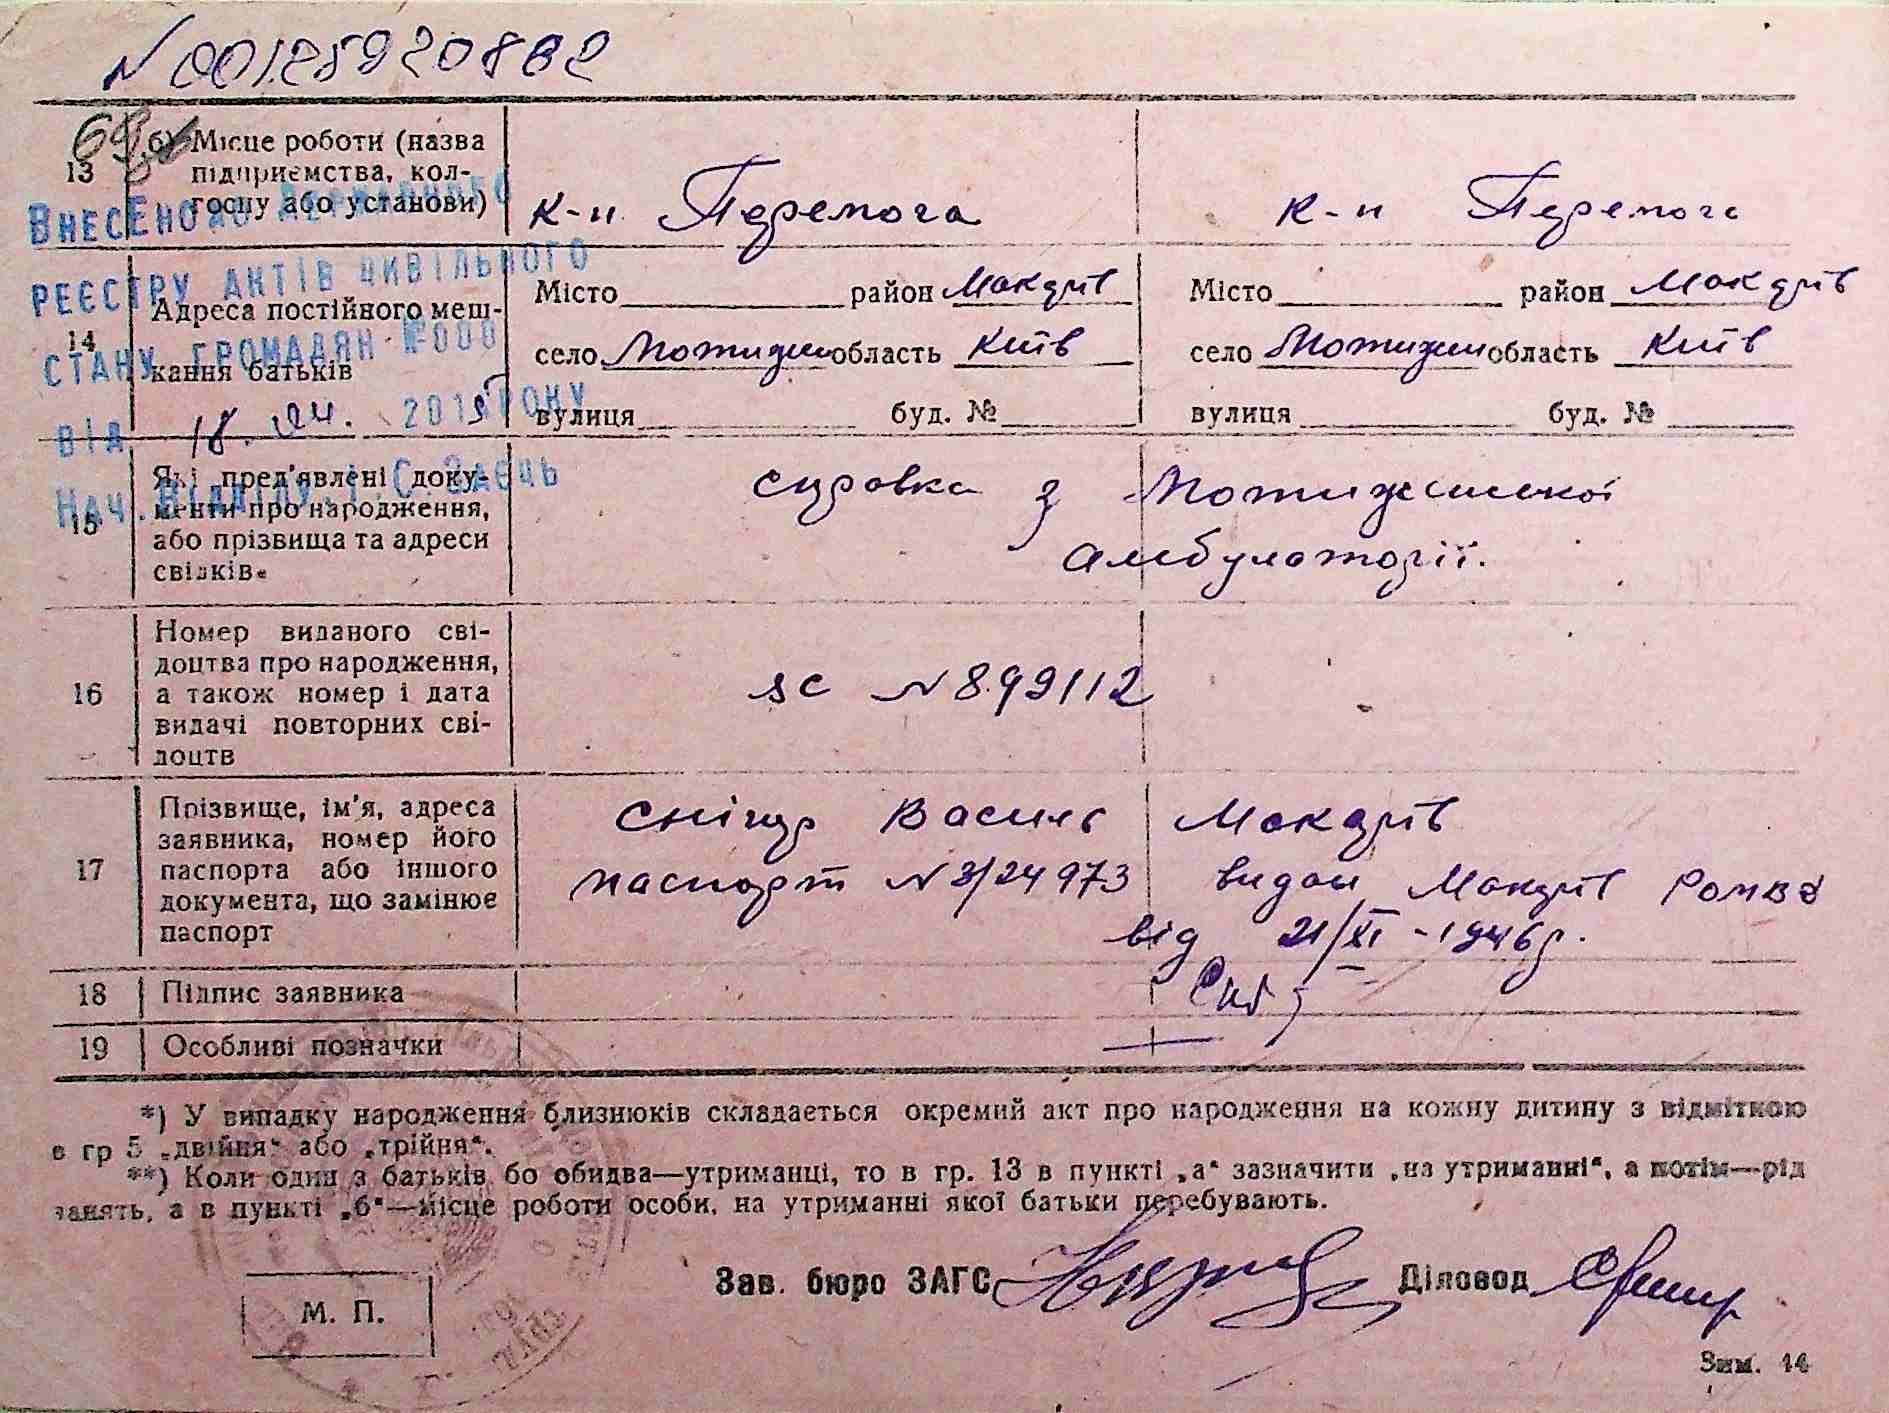 N00125920882
13 б) Місце роботи (назва
підприємства, кол-
госпу або установи)
к-п Перемога
к-п Перемога
ВНЕСЕНО ДО ДЕРЖАВНОГО
РЕЄСТРУ АКТІВ ЦИВІЛЬНОГО
СТАНУ ГРОМАДЯН №000
ВІД 18. 04. 2015 РОКУ
НАЧ. ВІДДІЛУ І.С. ЗАЄЦЬ
14 Адреса постійного меш-
кання батьків
Місто район Макарів
село Мотижин область Київ
вулиця буд. №
Місто район Макарів
село Мотижин область Київ
вулиця буд. №
15 Які пред'явлені доку-
менти про народження,
або прізвища та адреси
свідків
справка з Мотижинської
амбулаторії.
16 Номер виданого сві-
доцтва про народження,
а також номер і дата
видачі повторних сві-
доцтв
N 899112
17 Прізвище, ім'я, адреса
заявника, номер його
паспорта або іншого
документа, що замінює
паспорт
Снігир Василь Макарів
паспорт N 3/24973 видан Макарів
від 21/XI - 1946р.
18 Підпис заявника
19 Особливі позначки
*) У випадку народження близнюків складається окремий акт про народження на кожну дитину з відміткою
в гр 5 „двійня“ або „трійня“.
**) Коли один з батьків бо обидва—утриманці, то в гр. 13 в пункті „а“ зазначити „на утриманні“, а потім—рід
занять, а в пункті „б“—місце роботи особи, на утриманні якої батьки перебувають.
Зав. бюро ЗАГС
Діловод
М. П.
Зим. 14